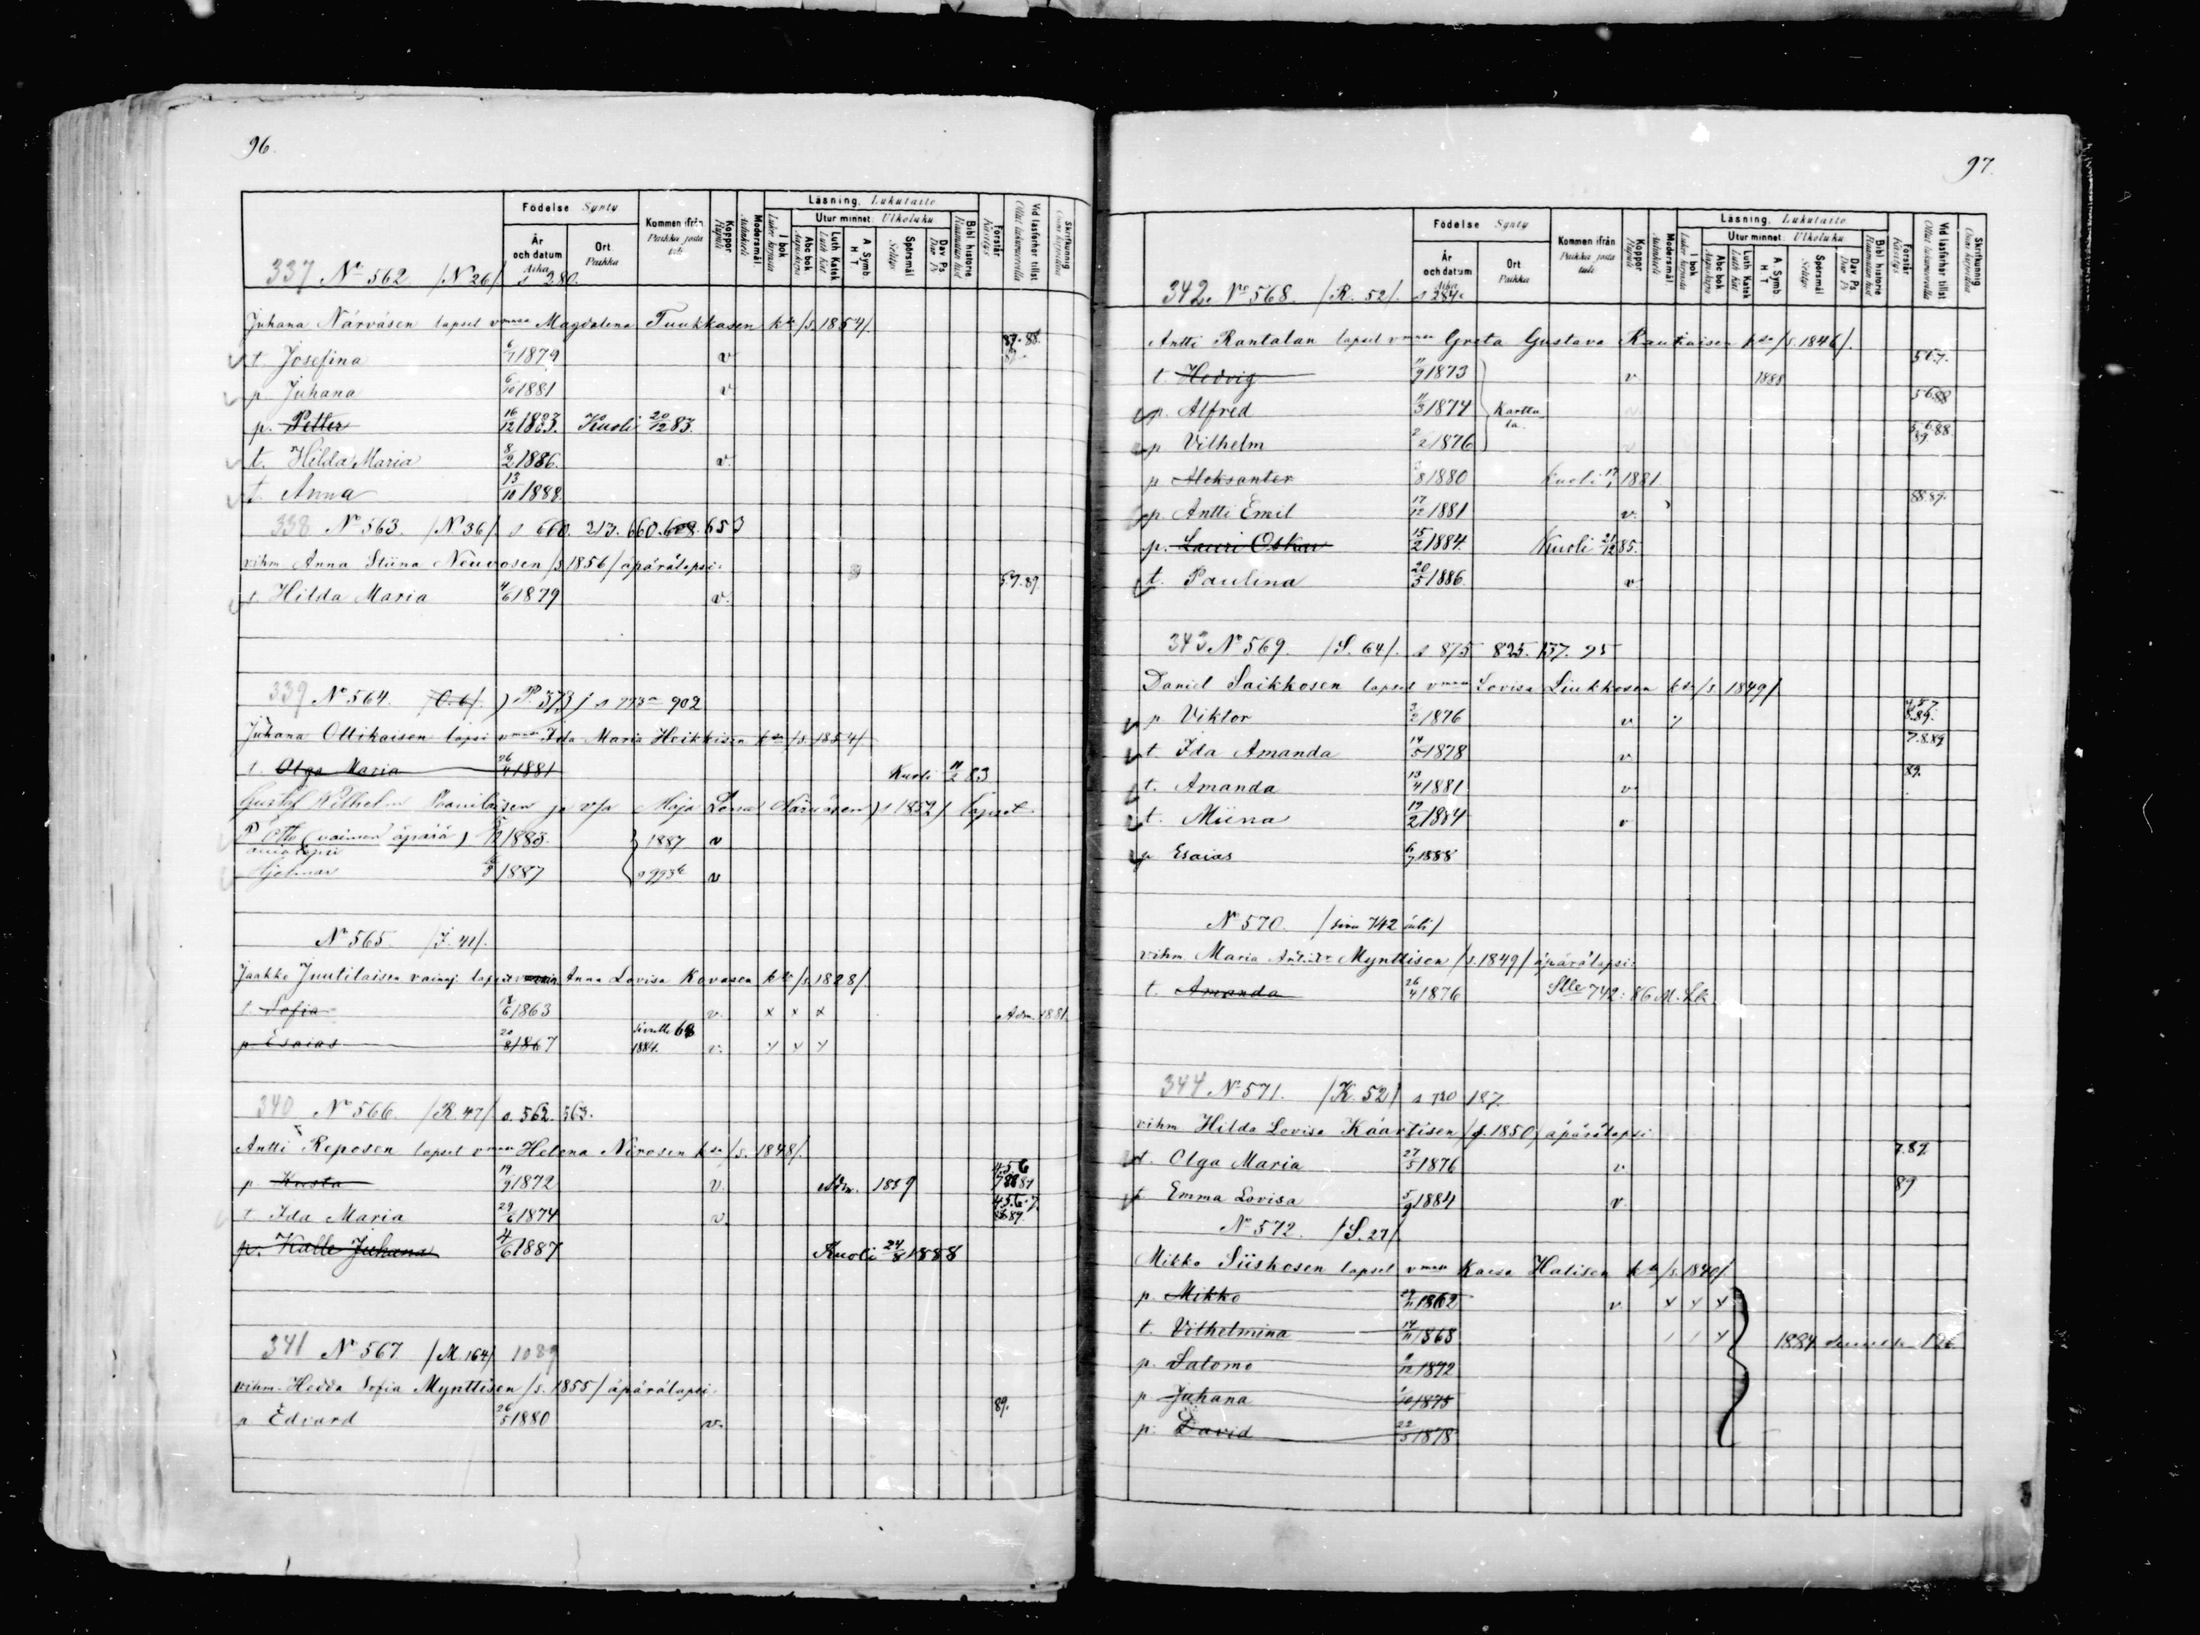 96.
Födelse Synty
Kommen ifrån
Paikka josta tuli
Koppor
Rupuli
Modersmål
Läsning. Lukutaito
Utur minnet: Ulkoluku
I bok
Abc bok
Luth Katek
A Symb. H T
Spörsmål
Dav. Ps
Bibl. historie
Förstår
Vid läsförhör tillst
Skrifkunnig
År och datum
Aika
Ort
Paikka
337 No 562 /N 26/ s 280.
Juhana Närväsen lapset vmosta Magdalena Tuukkasen kssa /s. 1854/.
t. Josefina 1879 v 87. 88.
p. Juhana 6/10 1881 v
p. Petter 16/12 1883. Kuoli 20/12 83.
t. Hilda Maria 8/2 1886. v.
t. Anna 13/10 1888
338 No 563. /N 36/. s 660. 213. 660. 608. 653
vihm Anna Stiina Nouvosen /s 1856/ äpärälapsi:
t. Hilda Maria 4/6 1879 v. 57. 89
339 No 564. /O. 6/. P. 373 902
Juhana Ollikaisen lapsi vmosta Ida Maria Heikkisen kssa /s. 1854/
t. Olga Maria 26/4 1881 Kuoli 11/2 83
Gustaf Vilhelm ja v/a Maja Lovisa Närväsen s 1852/ lapset
p Otto (vaimon äpärä) 1883. 1887 v
Hjalmar 1887 v
No 565. /J. 41/.
Jaakko Juutilaisen vainaj. lapset Anna Lovisa Kovasen kssa /s. 1828/.
t. Sofia 1863 v. x x x Adm. 1881.
p. Esaias 20/8 1867 Sivulle 68 1884. v. x x x
340 No 566. /R. 47/ s. 562. 563.
Antti Reposen lapset vmosta Helena Nirosen kssa /s. 1848/.
p. Kusta 19/9 1872 v. Adm. 1889 4.5.6 7 88 89
t. Ida Maria 29/6 1874 v. 4.5.6.7. 88 89.
p. Kalle Juhana 4/6 1887 Kuoli 24/8 1888
341 No 567 /M 164/ 1089
vihm. Hedda Sofia Mynttisen /s. 1855/ äpärälapsi.
a Edvard 26/5 1880 v. 89.
97.
Födelse Synty
Kommen ifrån
Paikka josta tuli
Koppor
Modersmål
Läsning. Lukutaito
Utur minnet: Ulkoluku
I bok
Abc bok
Luth Katek
A Symb H T
Spörsmål
Dav Ps
Bibl historie
Förstår
Vid läsförhör tillst
Skrifkunnig
År och datum
Aika
Ort
Paikka
342. No 568. /R. 52/. s 284.
Antti Rantalan lapset vmosta Greta Gustava Rautiaisen kssa /s. 1846/.
t. Hedvig 1873 v 1888 5 6 7.
p. Alfred 11/3 1874 Karttula. 5 6 88
p Vilhelm 1876 v 5 6 88 89
p Aleksanter 1880 Kuoli 1881
p. Antti Emil 17/12 1881 v. 88 89.
p. Lauri Oskar 15/2 1884. Kuoli 21/12 85.
t. Paulina 20/5 1886. v
343 No 569. /S. 64/. s 875 825. 137. 95
Daniel Saikkosen lapset vmosta Lovisa Liukkosen kssa /s. 1849/
p Viktor 3/2 1876 v
t Ida Amanda 14/5 1878 v 7. 8. 89
t. Amanda 13/4 1881 v 89.
t. Miina 19/2 1884 v
p Esaias 6/7 1888
No 570. /sivu 742 äiti/
vihm. Maria Mynttisen /s. 1849/ äpärälapsi:
t. Amanda 26/4 1876 Slle 742: 86 M. Lk
344 No 571. /K. 52/ 187.
vihm Hilda Lovisa Kaartisen /s. 1850/ äpärälapsi
t. Olga Maria 27/5 1876 v 7. 89
t Emma Lovisa 5/9 1884 v. 89
No 572. /S. 27/
Mikko Siiskosen lapset vmosta Kaisa Halisen kssa /s. 1840/
p. Mikko 1862 v x x x
t. Vilhelmina 14/11 1868 1884 126
p. Salomo 1872
p Juhana 1/10 1875
p. David 22/5 1878